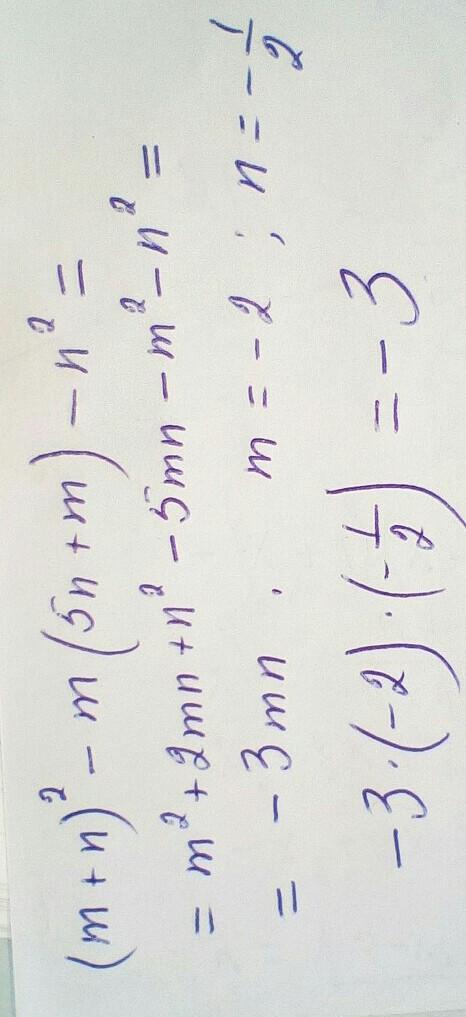 (m+n)² - m(5n+m) - n² =
= m² + 2mn + n² - 5mn - m² - n² =
= - 3mn . m = -2 ; n = -1/2
-3·(-2)·(-1/2) = -3